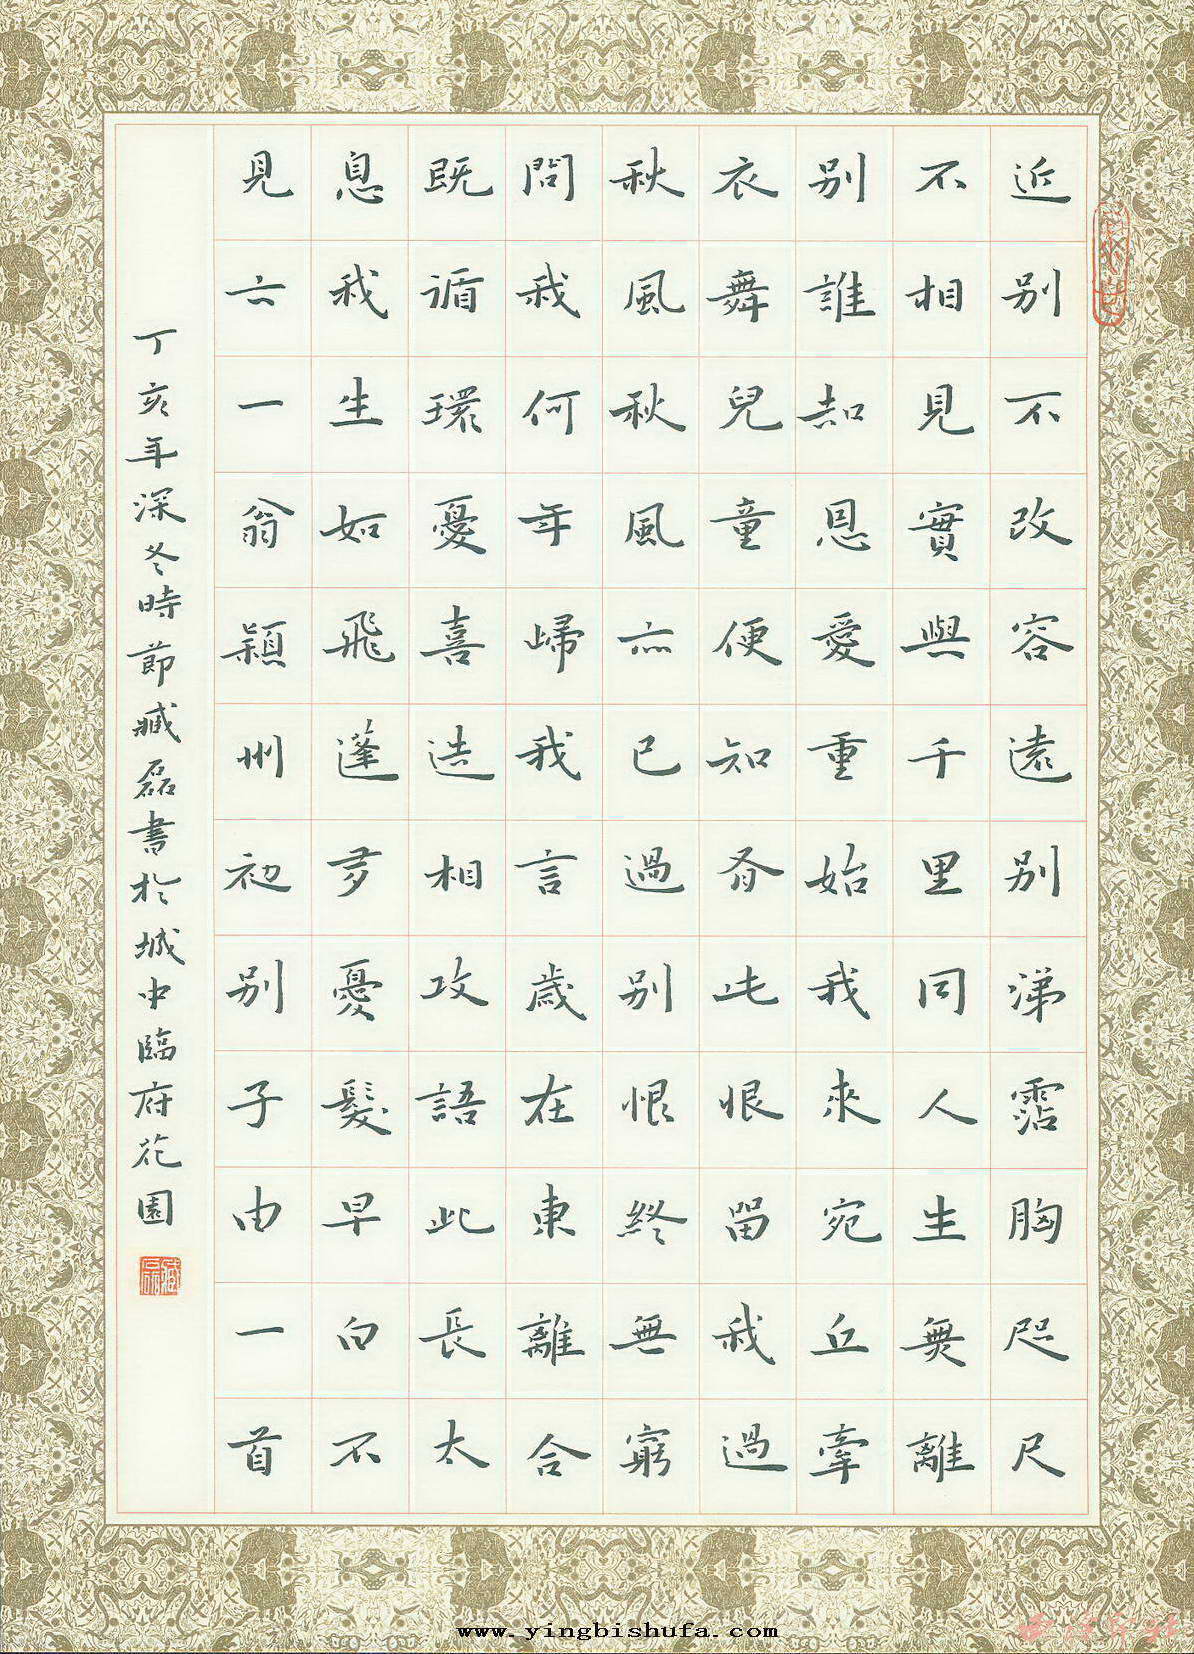 近別不改容遠別涕霑胸咫尺
不相見實與千里同人生無離
別誰知恩愛重始我來宛丘牽
衣舞兒童便知有此恨留我過
秋風秋風亦已過別恨終無窮
問我何年歸我言歲在東離合
既循環憂喜迭相攻語此長太
息我生如飛蓬多憂髮早白不
見六一翁潁州初別子由一首
丁亥年深冬時節臧磊書於城中臨府花園
臧磊
www.yingbishufa.com